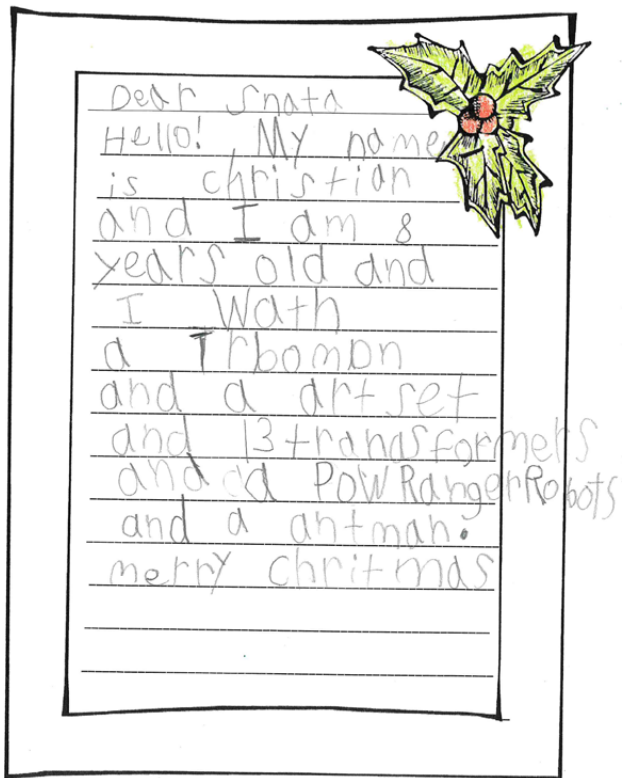 Dear Snata
Hello! My name
is christian
and I am 8
years old and
I Wath
a Trbomon
and a art set
and 13 transformers
and a PowRangerRobots
and a antman.
merry chritmas